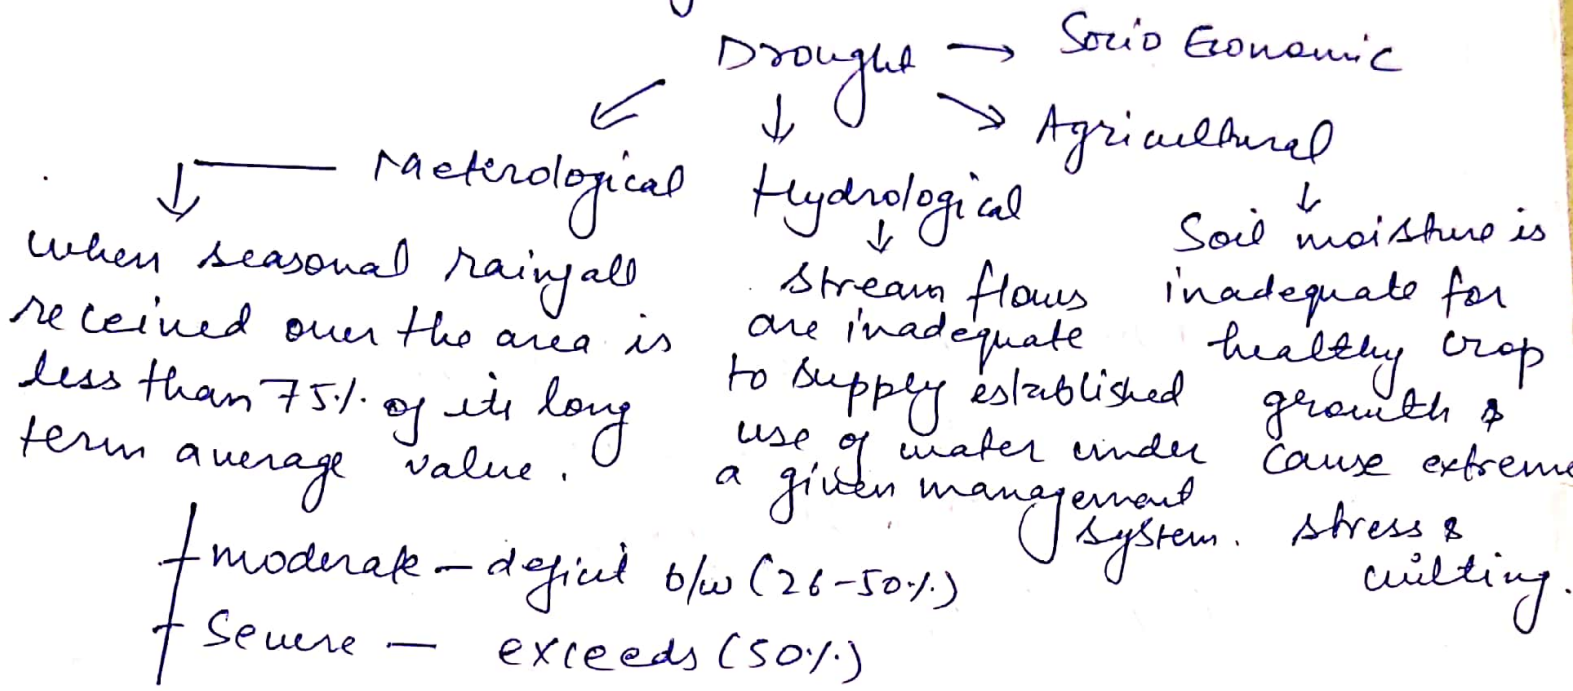 Drought → Socio Economic
Agricultural
Meterological
Hydrological
when seasonal rainfall
received over the area is
less than 75% of its long
term average value.
moderate – deficit b/w (26-50%)
Severe – exceeds (50%)
Stream flows
are inadequate
to supply established
use of water under
a given management
system.
Soil moisture is
inadequate for
healthy crop
growth &
cause extreme
stress &
wilting.